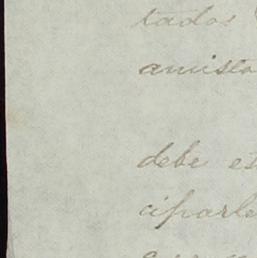 tados
amista
debe es
ciparle